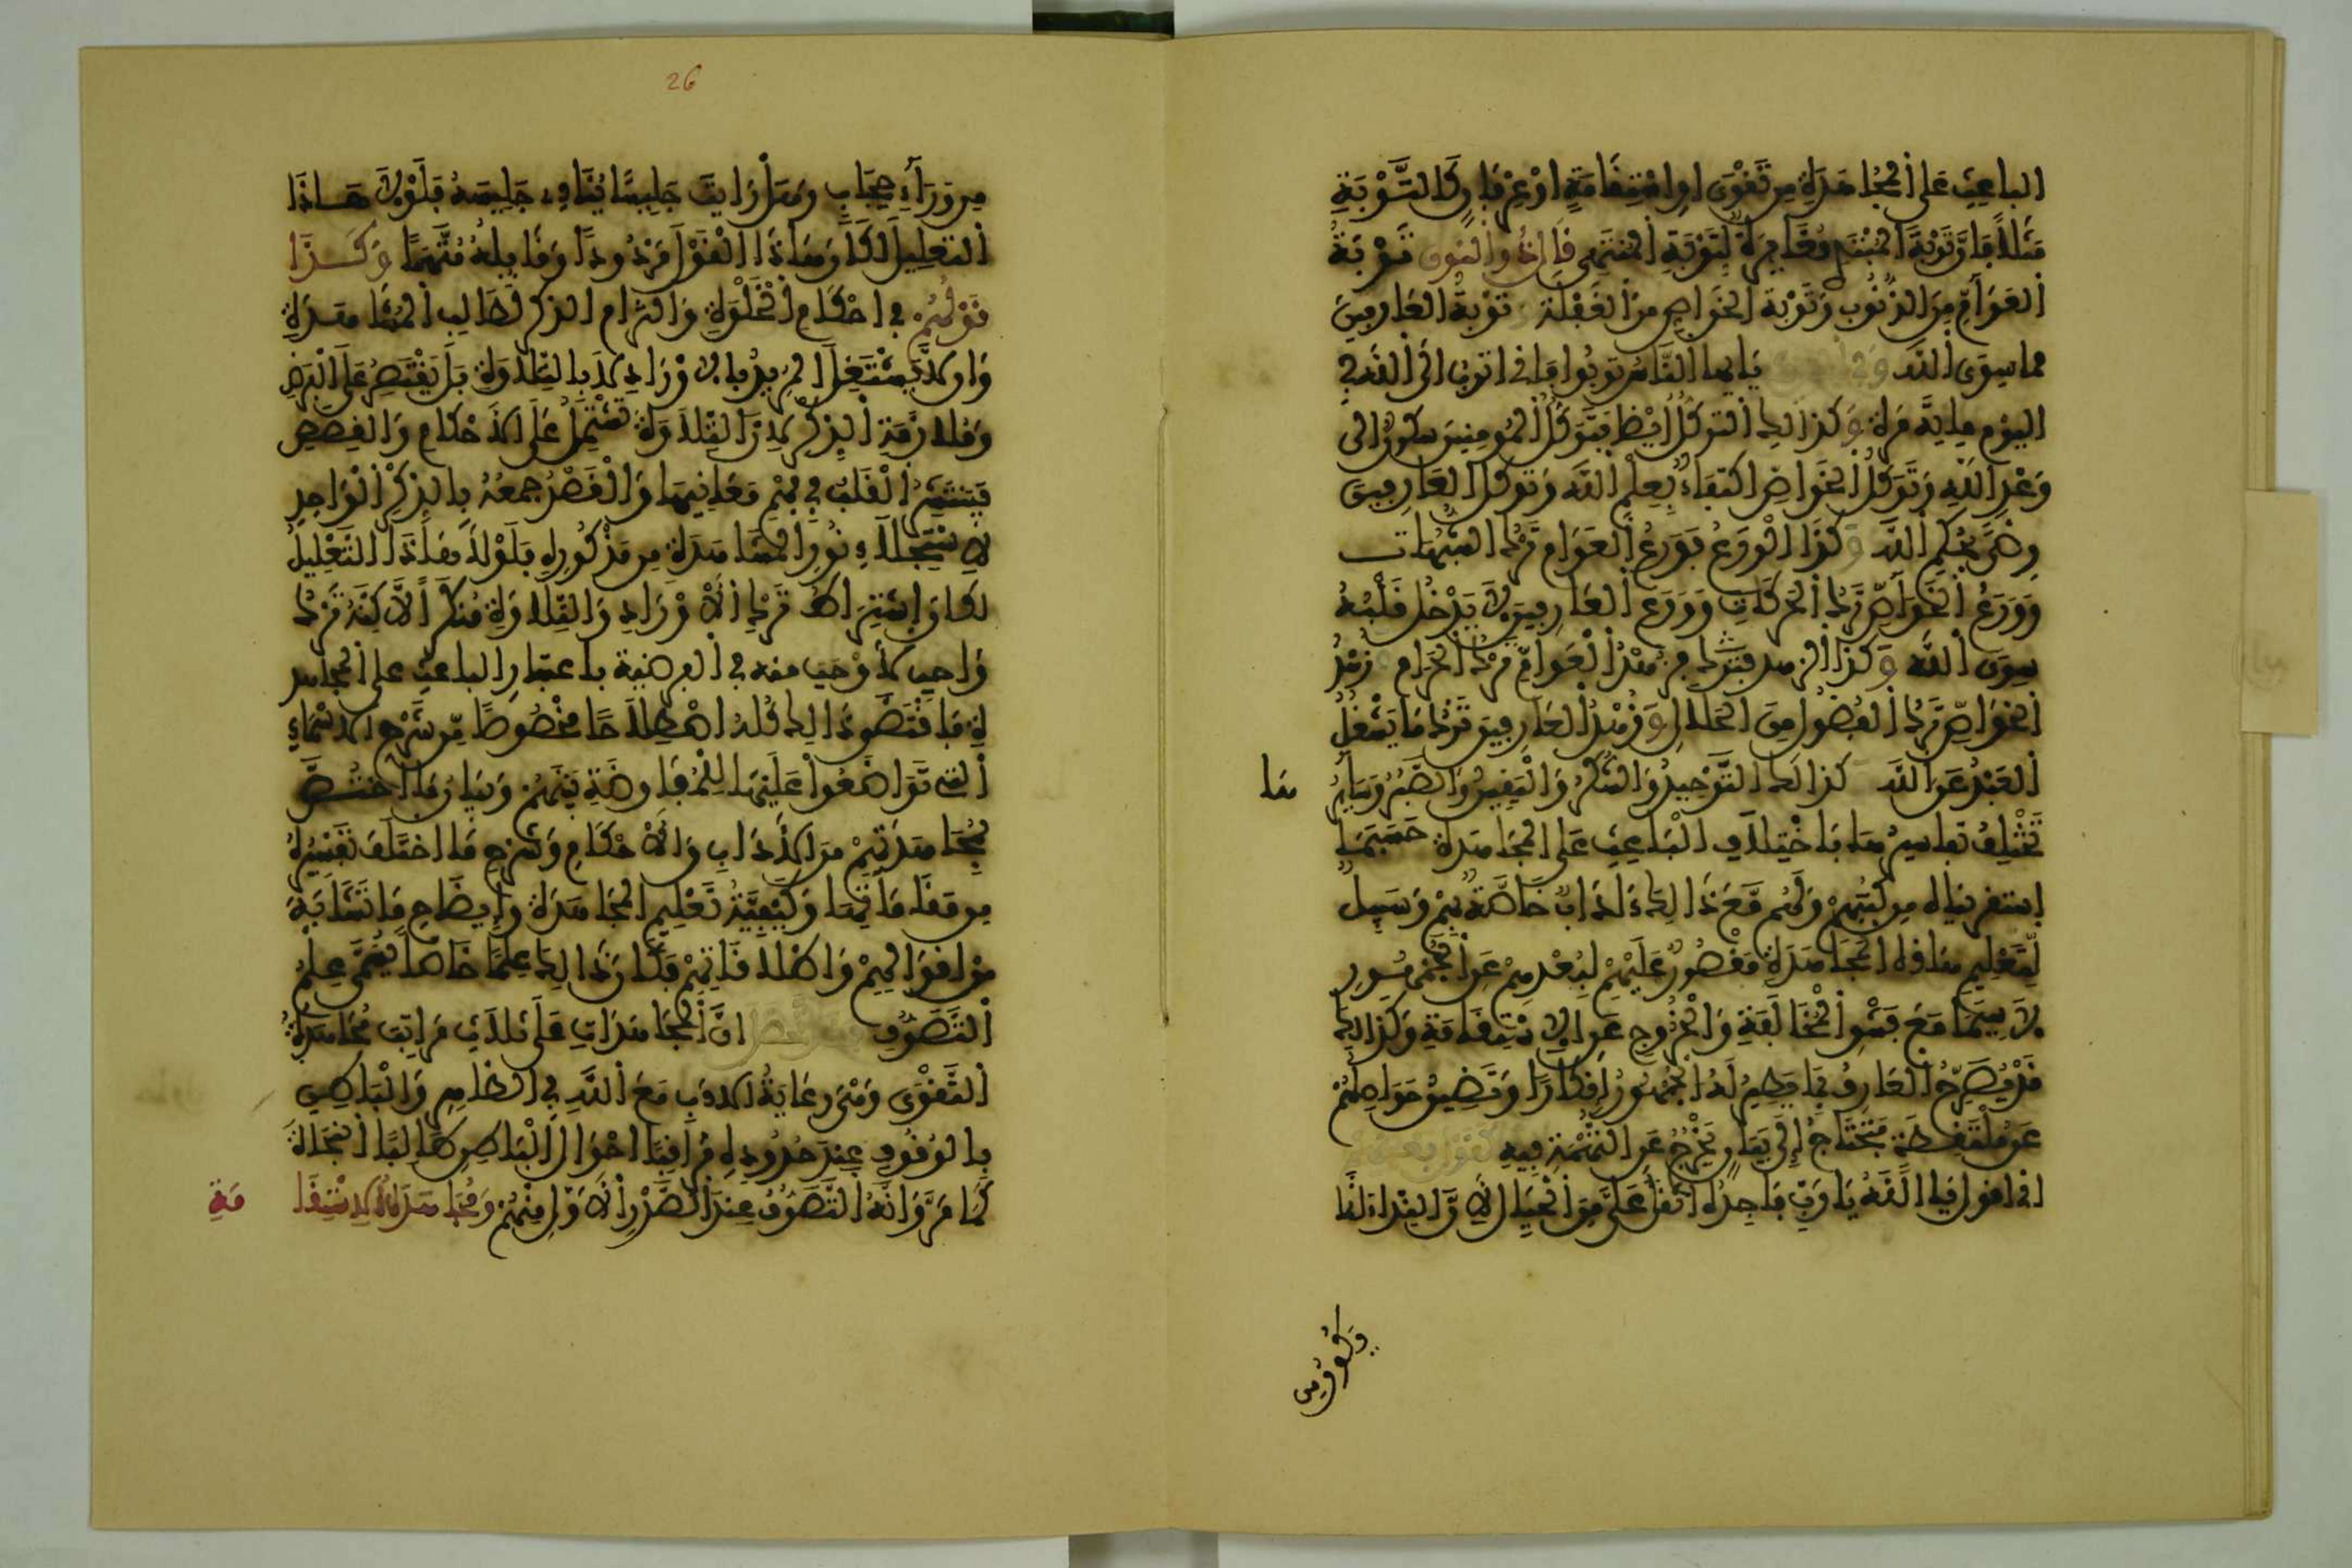 الباعث على المجاهدة من تقوى او استقامة او عرفان كالتوبة
مثلا فان توبة المبتدي مغايرة لتوبة المنتهي قال ذو النون توبة
العوام من الذنوب وتوبة الخواص من الغفلة وتوبة العارفين
مما سوى الله يايها الناس توبوا فاني اتوب الى الله في
اليوم ماية مرة وكذالك التوكل ايضا فتوكل المومنين سكون الى
وعد الله وتوكل الخواص اكتفاء بعلم الله وتوكل العارفين
رضى بحكم الله وكذا الورع فورع العوام ترك الشبهات
وورع الخواص ترك الحركات وورع العارفين لا يدخل قلبه
سوى الله وكذا الزهد فزهد العوام ترك الحرام وزهد
الخواص ترك الفضول من الحلال وزهد العارفين ترك ما يشغل
العبد عن الله كذالك التوحيد والشكر واليقين والصبر وسائر ما
تختلف تفاسيرها باختلاف الباعث على المجاهدة حسبما
استقريناه من كتبهم ولهم مع ذالك ءاداب خاصة بهم وسبيل
لتعليم هاذه المجاهدة مقصور عليهم لبعدهم عن الجمهور
لا سيما مع فشو المخالفة والخروج عن الاستقامة وكذالك
قد يصرح العارف بما يظهر له الجمهور إنكارا وتضيق حواصلهم
عن ملتقطة فتحتاج إلى بيان يخرج عن التهمة فيه
اني اقول يا الله يا رب فاجده اثقل علي من الجبال لان النداء
من وراء حجاب وهل رايت جليسا ينادي جليسه فلولا هاذا
التعليل لكان هاذا القول مردودا وقايله متهما وكذا
قولهم في احكام الخلوة والتزام الذكر لطالب المشاهدة
وان لا يشتغل المريد بالاوراد لا بالتلاوة بل يقتصر على الفرض
وملازمة الذكر لان التلاوة تشتمل على الاحكام والقصص
فيتشتت القلب في فهم معانيها والقصد جمعه بالذكر الواحد
لاستجلاء نور المشاهدة من مذكوره فلولا هاذا التعليل
لكان اشتراط ترك الاوراد والتلاوة منكرا لاكنه ترك
واجب لاوجب منه في الفرضية باعتبار الباعث على المجاهد
ة فاقتضى ذالك كله اصطلاحا مخصوصا من شرح الاسماء
التي تواضعوا عليها للمفاوضة بينهم وبيان ما اختص
بمجاهدتهم من الاداب والاحكام وشرح ما اختلف تفسيره
من مقاماتها وكيفية تعليم المجاهدة وإيضاح ما تشابه
من اقوالهم واصطلاقاتهم فكان ذالك علما خاصا يسمى علم
التصوف ان المجاهدات على ثلاث مراتب مجاهدة
التقوى وهي رعاية الادب مع الله في الظاهر والباطن
بالوقوف عند حدوده مراقبا احوال الباطن طالبا النجاة
كما مر وانه التصوف عند الصدر الاول منهم ومجاهدة الاستقا مة
26